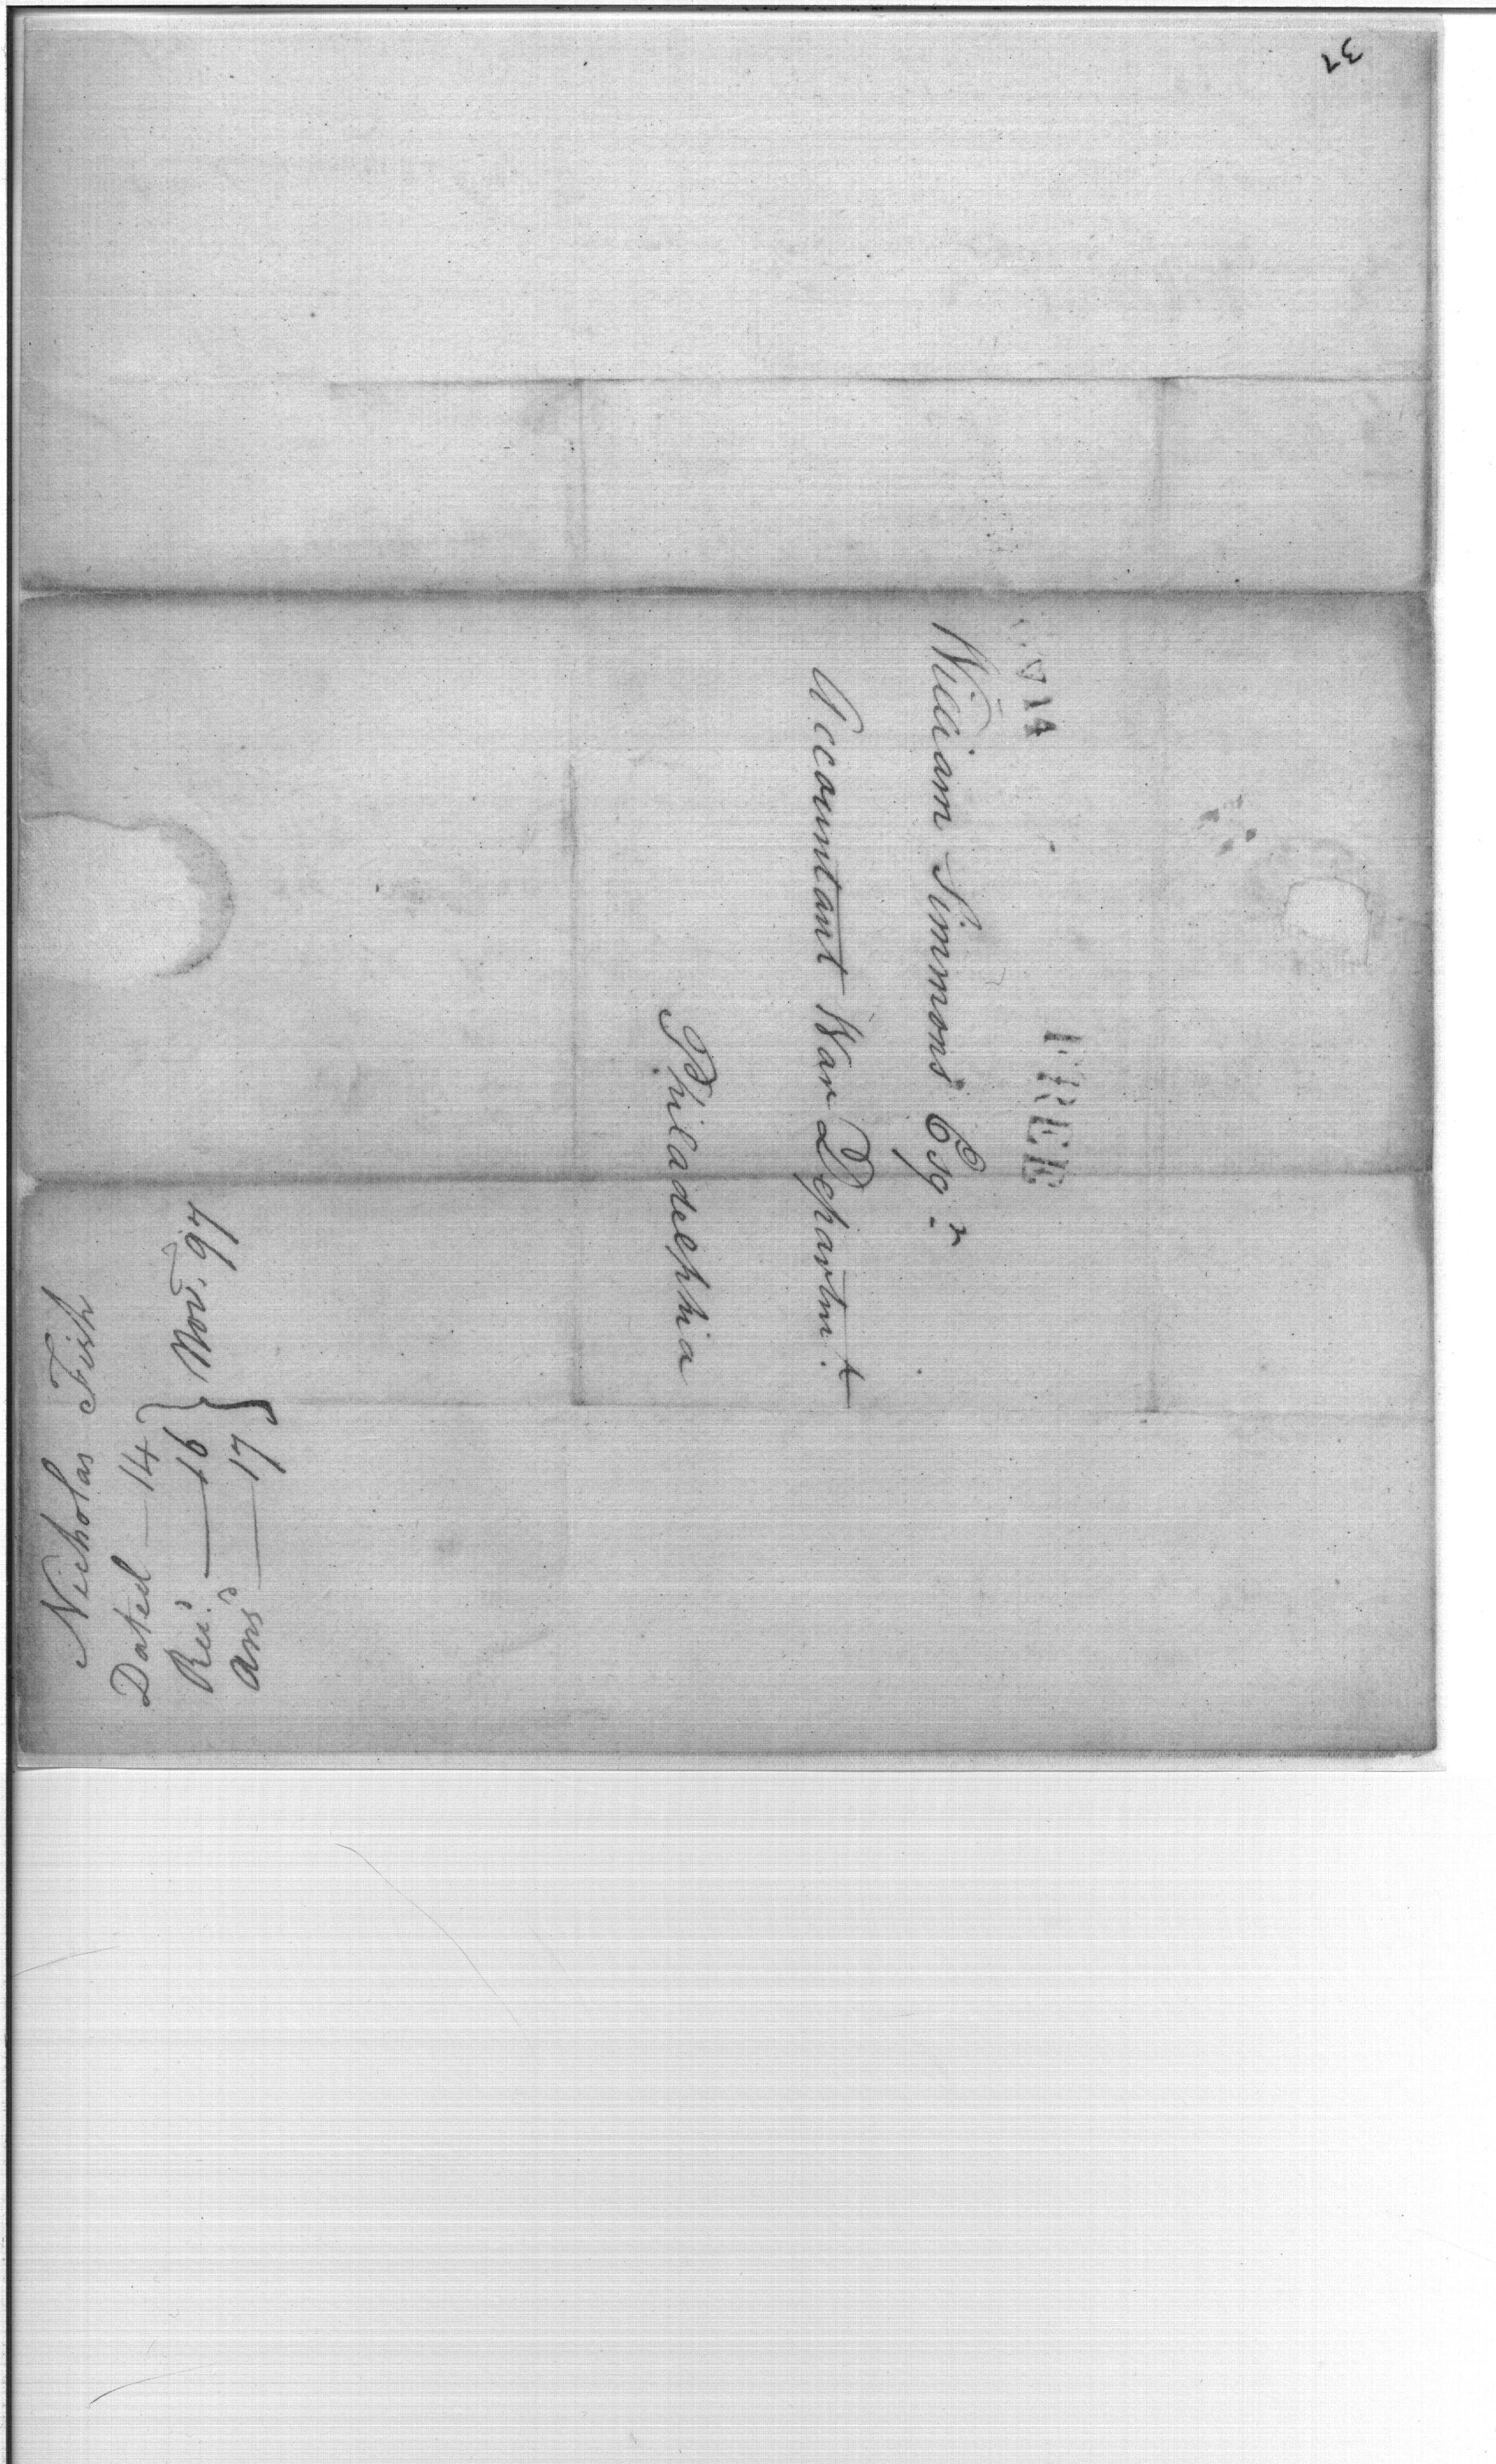 37
14 FREE
William Simmons Esqr.
Accountant War Departmt.
Philadelphia
Nicholas Fish
Dated — 14 }
Recd. — 16 } Nov. 97
Ansd — 17 }